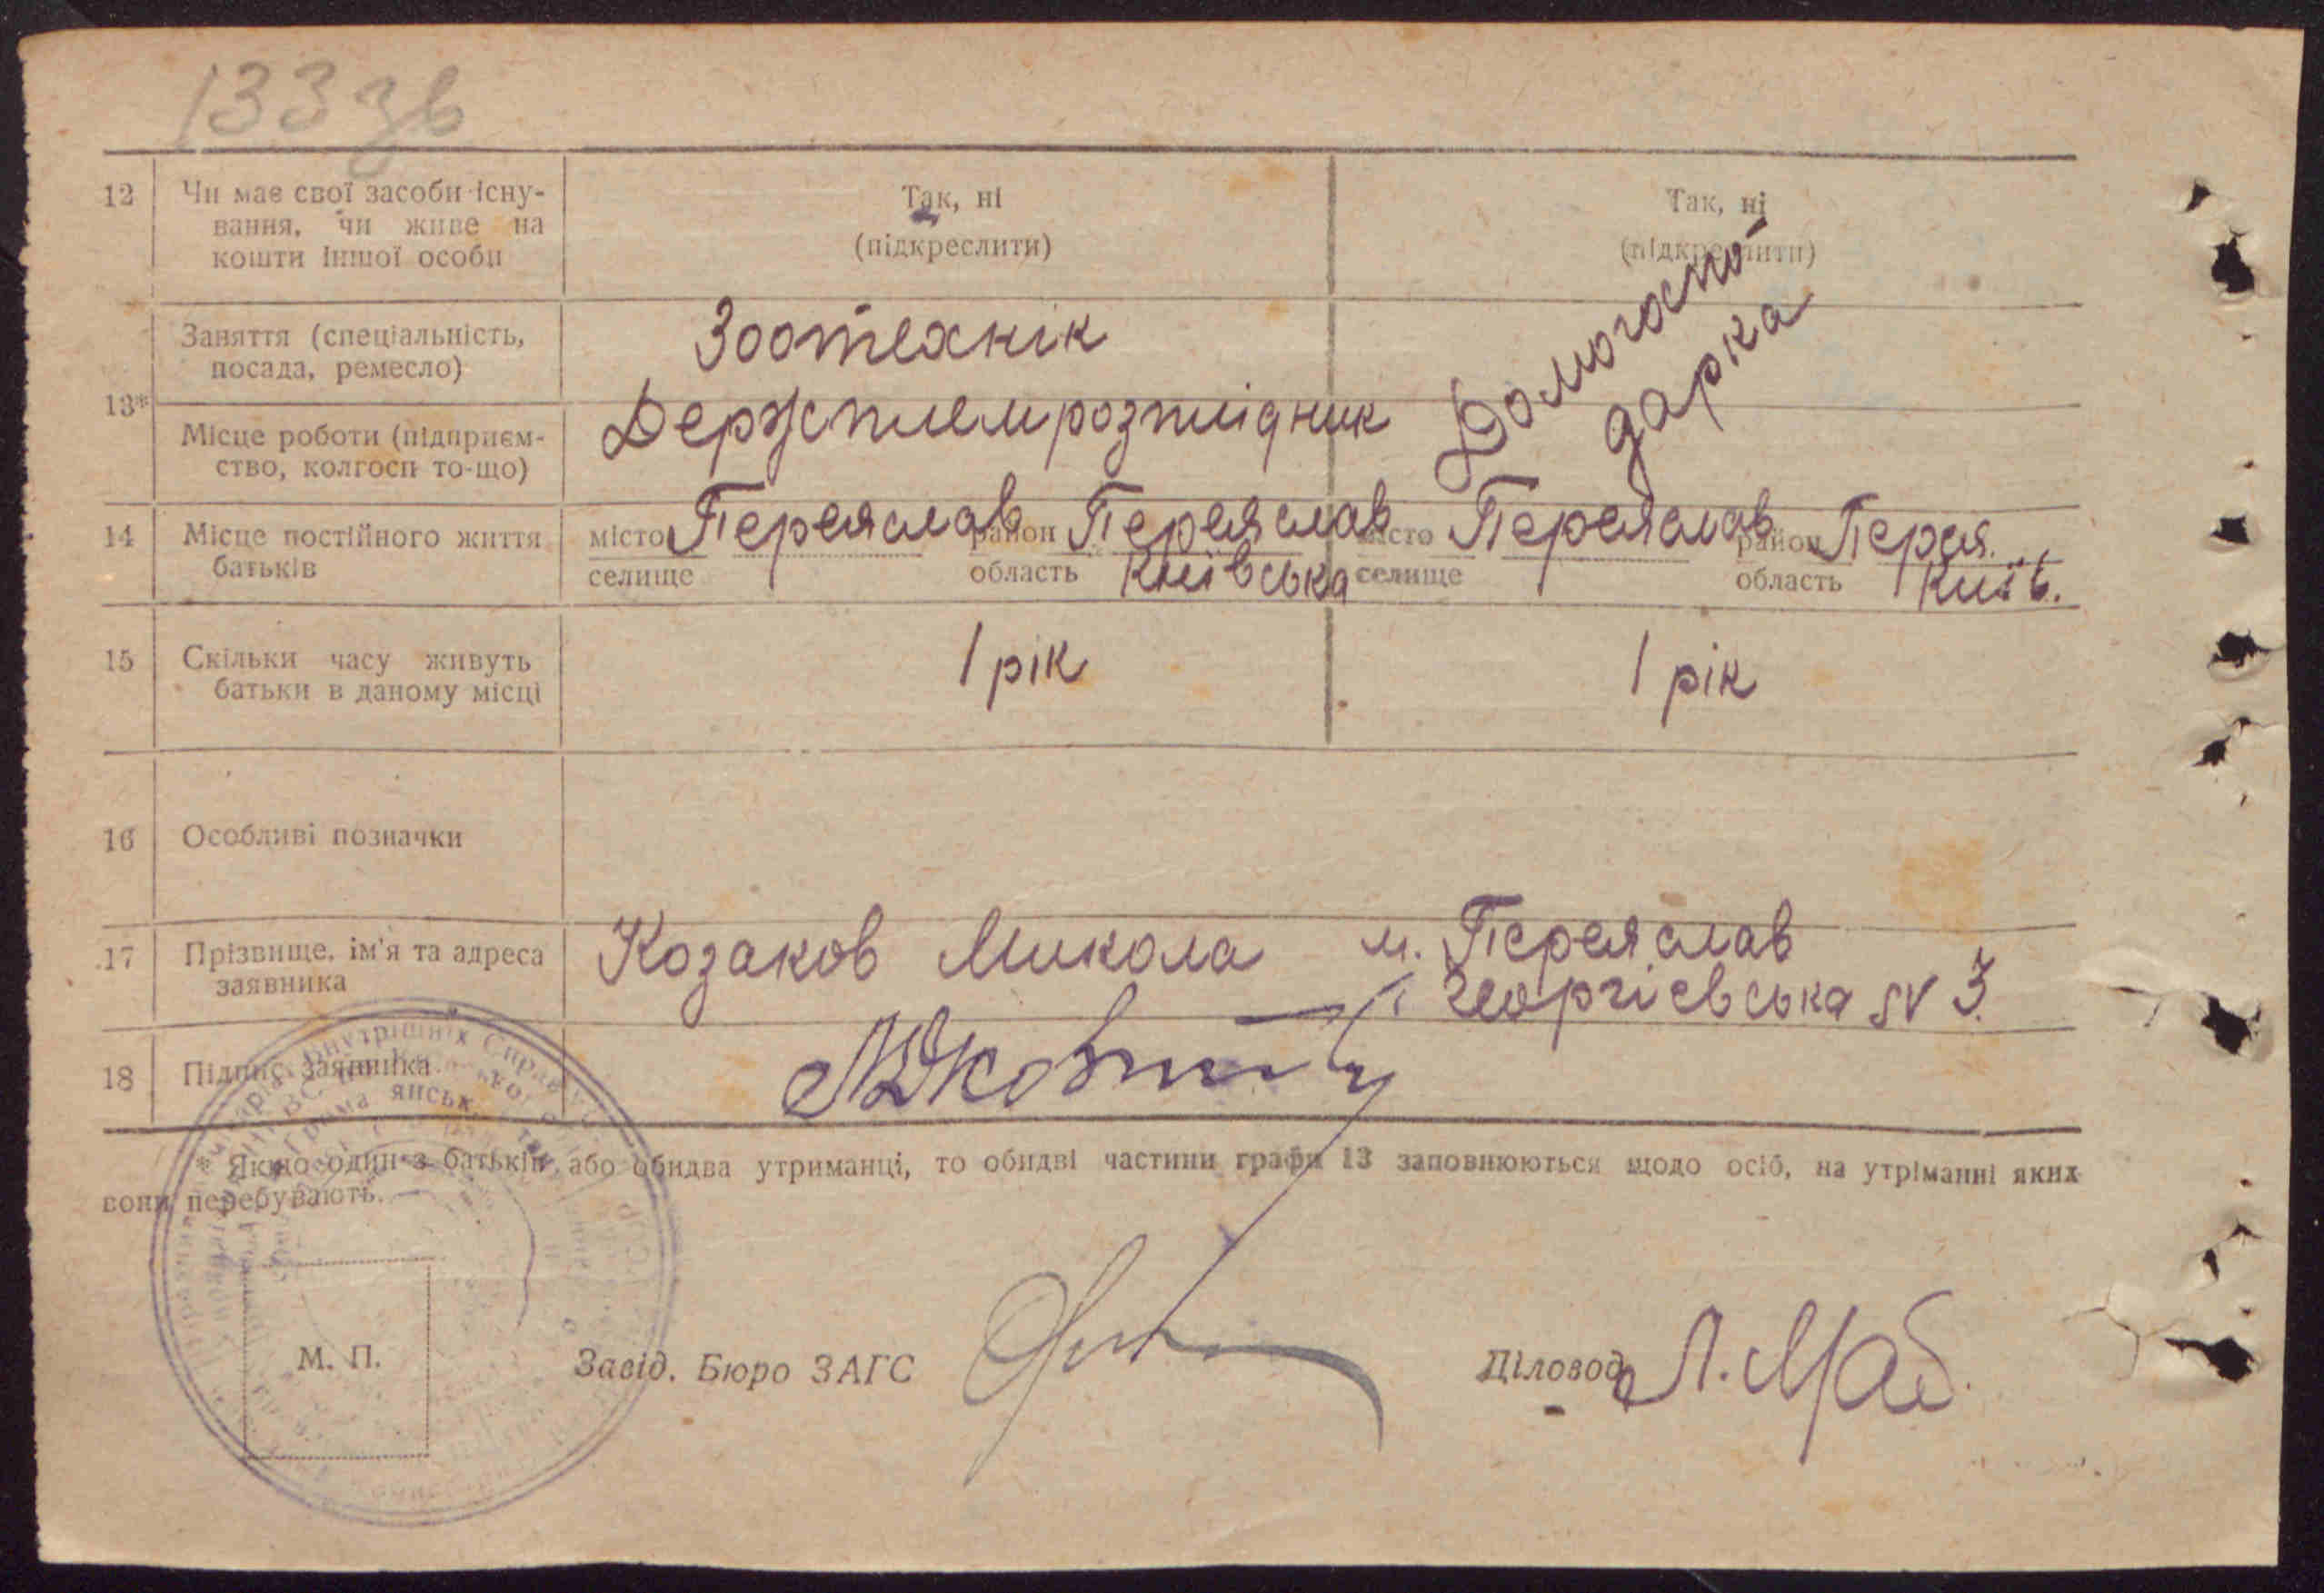 133 зв
12 Чи має свої засоби існу-
вання, чи живе на
кошти іншої особи
Так, ні
(підкреслити)
Так, ні
(підкреслити)
13*
Заняття (спеціальність,
посада, ремесло)
Зоотехнік
Домогоспо-
дарка
Місце роботи (підприєм-
ство, колгосп то-що)
Держплемрозплідник
14 Місце постійного життя
батьків
місто Переяслав район Переяслав
селище область Київська
місто Переяслав район Перея.
селище область Київ.
15 Скільки часу живуть
батьки в даному місці
1 рік
1 рік
16 Особливі позначки
17 Прізвище, ім'я та адреса
заявника
Козаков Микола м. Переяслав
Георгієвська № 3.
18 Підпис заявника
* Якщо один з батьків, або обидва утриманці, то обидві частини графи 13 заповнюються щодо осіб, на утріманні яких
вони перебувають.
М. П.
Завід. Бюро ЗАГС
Діловод